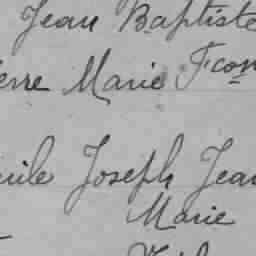 Jean Baptiste
Marie Fcon
Joseph Jean
Marie